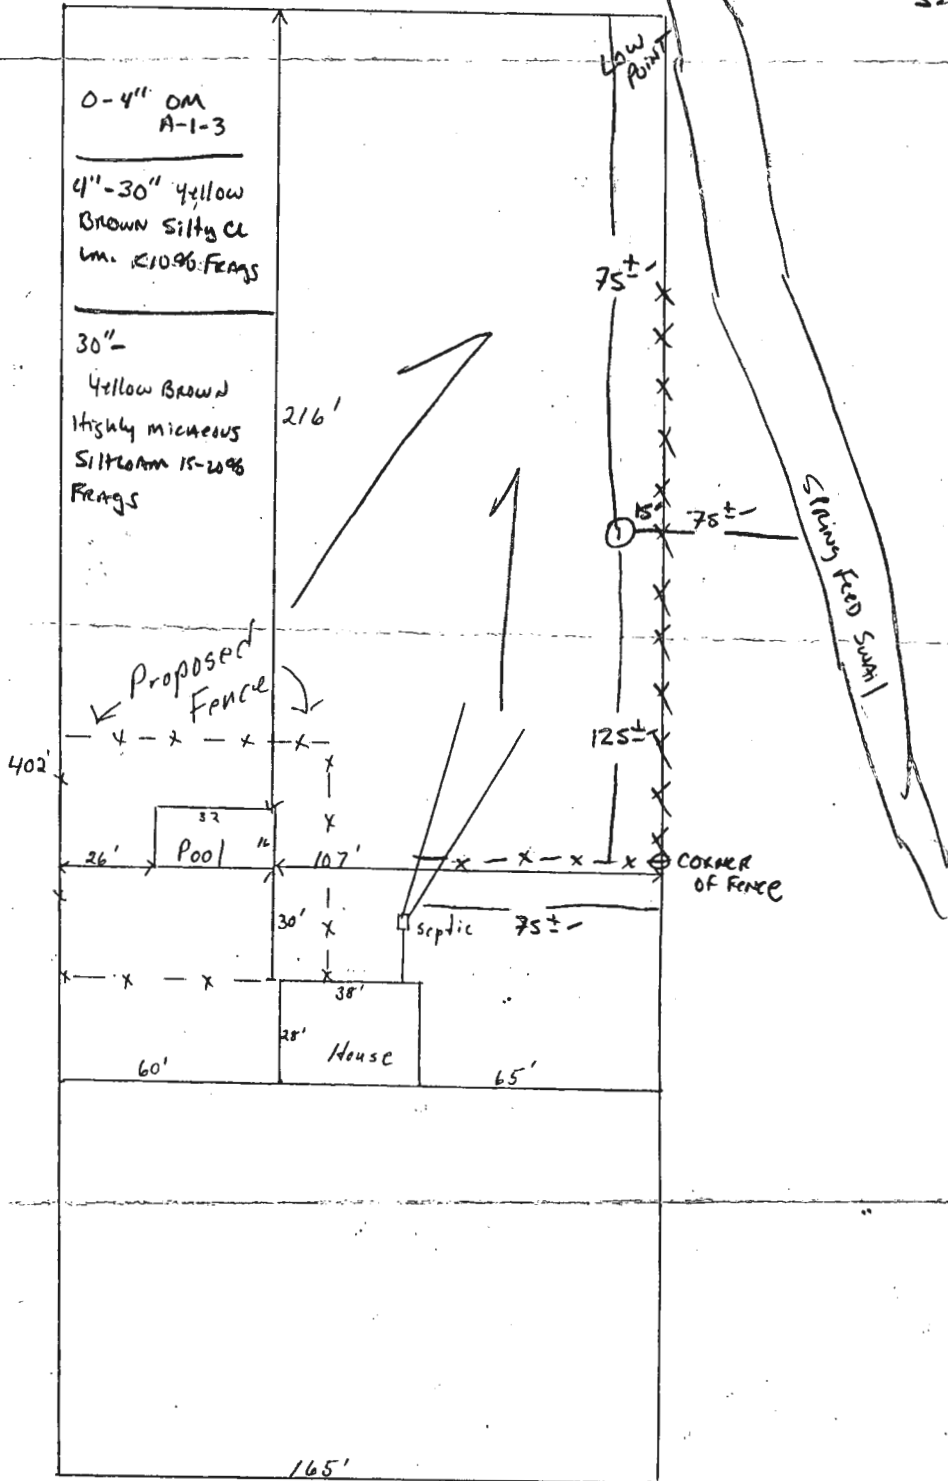 LOW
POINT
0-4" OM
A-1-3
4"-30" Yellow
BROWN Silty CL
Lm. <10% FRAGS
30"-
Yellow BROWN
Highly micaeous
Siltloam 15-20%
FRAGS
216'
75±'
15'
75±'
1
SPRING FEED SWAil
Proposed
Fence
125±'
402'
32
16
Pool
26'
107'
CORNER
OF FENCE
30'
septic
75±'
38'
28'
House
60'
65'
165'